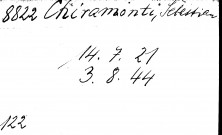 8822 Chiramonti, Sebastian
14. 7. 21
3. 8. 44
122